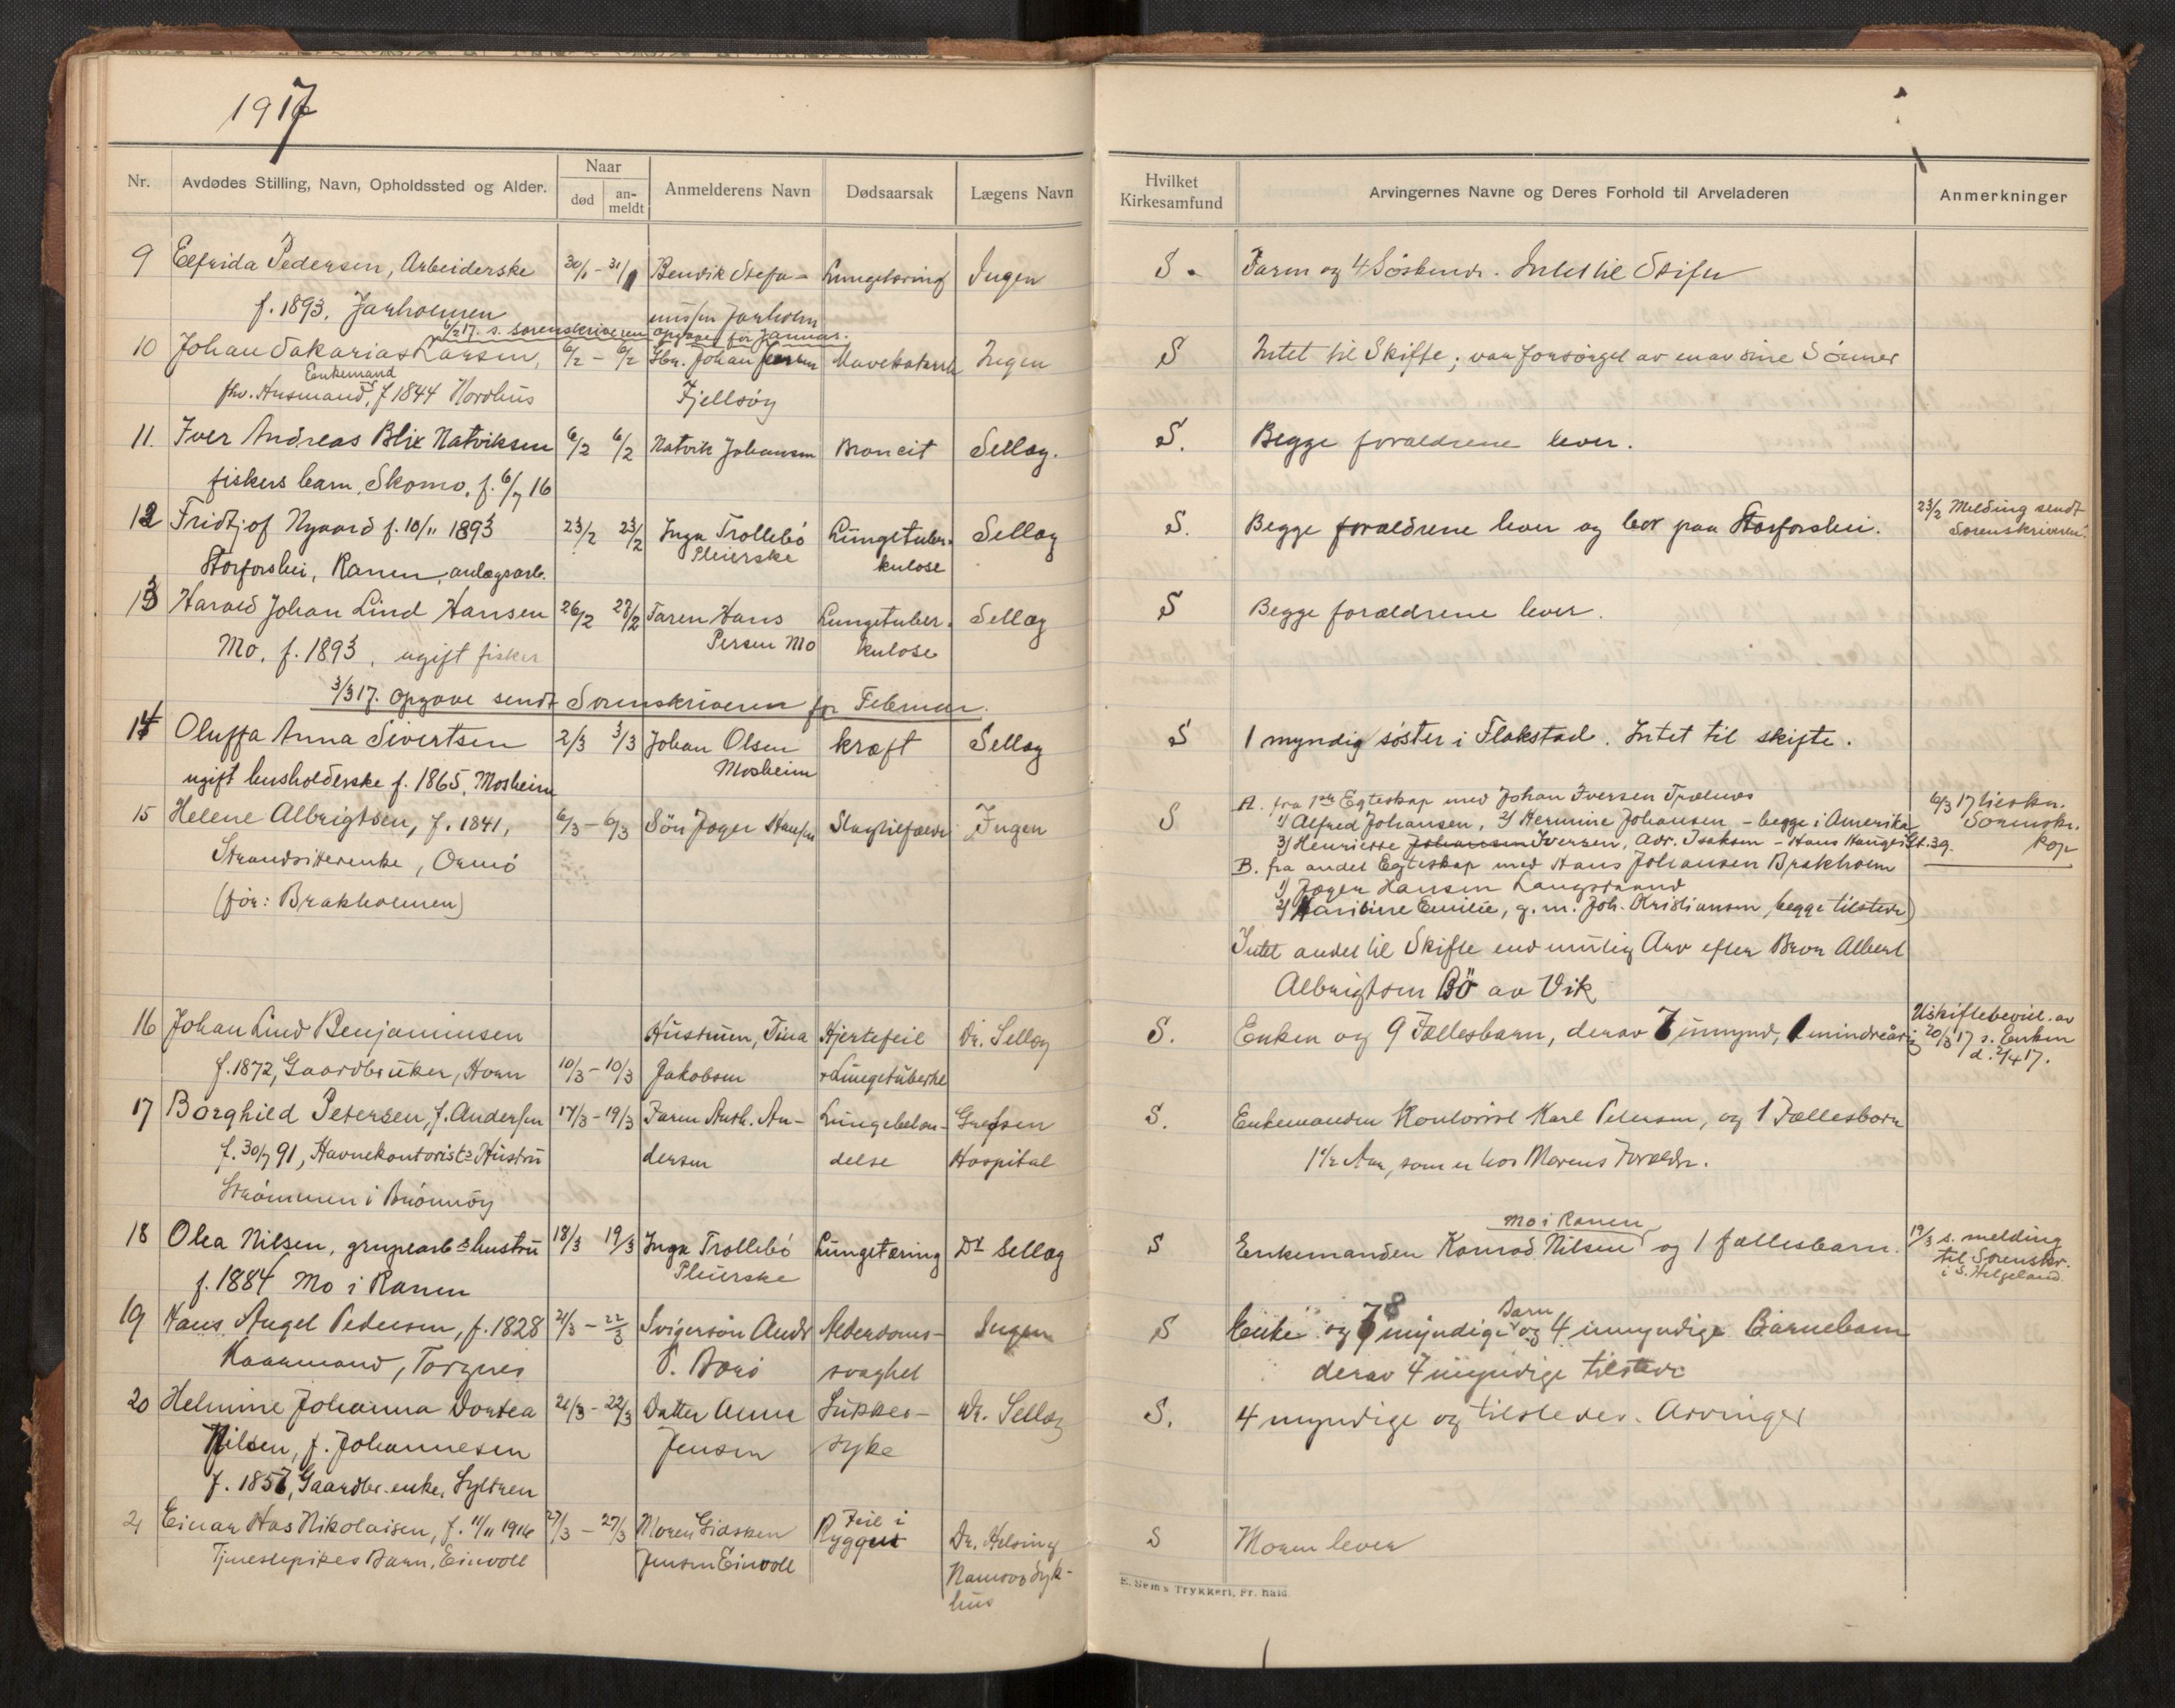 1917
Nr.
Avdødes Stilling, Navn, Opholdssted og Alder.
Naar
død
an-
meldt
Anmelderens Navn
Dødsaarsak
Lægens Navn
Hvilket
Kirkesamfund
Arvingernes Navne og Deres Forhold til Arveladeren
Anmerkninger
9 Elfrida Pedersen, Arbeiderske 30/1 - 31/1 Bendik Stefa- Lungetæring Ingen S. Faren og 4 Søskende. Intet til Skifte
f. 1893, Jarholmen
6/2 17. s. sorenskriveren opgave for Januar.
10 Johan Sakarias Larsen, 6/2 - 6/2 Johan Mavekatarrh Ingen S Intet til Skifte; var forsørget av en av sine Sønner
Enkemand
fhv. Husmand, f 1844 Nordhus Fjellsøy
11. Iver Andreas Blix Natviksen 6/2 6/2 Natvik Johansen Broncit Sellæg. S. Begge forældrene lever.
fiskers barn, Skomo, f. 6/7 16
12 Fridtjof Nygaard f. 10/11 1893 23/2 23/2 Inga Trollebø Lungetuber- Sellæg S. Begge forældrene lever og bor paa Storforshei. 23/2 Melding sendt
Sorenskriveren.
Storforshei, Ranen, anlægsarb. Pleierske kulose
13 Harald Johan Lind Hansen 26/2 27/2 Faren Hans Lungetuber- Sellæg S Begge forældrene lever.
Mo, f. 1893, ugift fisker Persen Mo kulose
3/3 17. opgave sendt Sorenskriveren for Februar.
14 Oluffa Anna Sivertsen 2/3 3/3 Johan Olsen kræft Sellæg S 1 myndig søster i Flakstad. Intet til skifte.
ugift husholderske f. 1865, Mosheim Mosheim
15 Helene Albrigtsen, f. 1841, 6/3 - 6/3 Søn Jæger Hansen Slagtilfælde Ingen S
Strandsitterenke, Ormø
(før: Brakholmen)
A. fra 1ste Egteskap med Johan Iversen Trælnes
1) Alfred Johansen, 2) Hermine Johansen - begge i Amerika
3) Henriette Johansen Iversen, Adr. Isaksen - Hans Haugesgt. 39.
B. fra andet Egteskap med Hans Johansen Brakholm
1) Jæger Hansen Langstrand
2) Emilie, g. m. Joh. Kristiansen, begge tilstede)
Intet andet til Skifte end mulig Arv efter Bror Albert
Albrigtsen Bø av Vik
6/3 17
Sorenskr.
16 Johan Lind Benjaminsen Hustruen, Tina Hjertefeil Dr. Sellæg S. Enken og 9 Fællesbarn, derav 7 umynd, 1 mindreårig
f. 1872, Gaardbruker, Horn 10/3 - 10/3 Jakobsen + Lungetuberkl
Uskiftebevil. av
20/3 17 s. Enken
d. 2/4 17.
17 Borghild Petersen, f. Andersen 17/3 - 19/3 Faren Anth. An- Lungebetæn- Grefsen S. Enkemanden Kontorist Karl Petersen, og 1 Fællesbarn
f. 30/7 91, Havnekontorists Hustru dersen delse Hospital 1 1/2 Aar, som er hos Morens Forældre.
Strømmen i Brønnøy
18 Olea Nilsen, grupearb's hustru 18/3 19/3 Inga Trollebø Lungetæring Dr Sellæg S Enkemanden Konrad Nilsen og 1 fællesbarn.
Mo i Ranen
f. 1884 Mo i Ranen Pleierske
19/3 s. melding
til Sorenskr.
i S. Helgeland
19 Hans Angel Pedersen, f. 1828 21/3 - 22/3 Svigersøn Andr Alderdoms- Ingen S Enke og 8 myndige Barn og 4 umyndige Barnebarn
Kaarmand, Torgnes svaghet derav 4 myndige tilstede
20 Helmine Johanna Dortea 21/3 - 22/3 Datter Anna Sukker- Dr. Sellæg S. 4 myndige og tilstedev. Arvinger
Nilsen, f. Johannesen Jensen syke
f. 1857, Gaardbr. enke, Sylteren
21 Einar Has Nikolaisen, f. 11/11 1916 27/3 - 27/3 Moren Gidsken Feil i Dr. Helsing S Moren lever
Tjenestepikes Barn, Einvoll Jensen Einvoll Ryggen Namsos Syk-
hus
E. Sem's Trykkeri, Fr. hald.